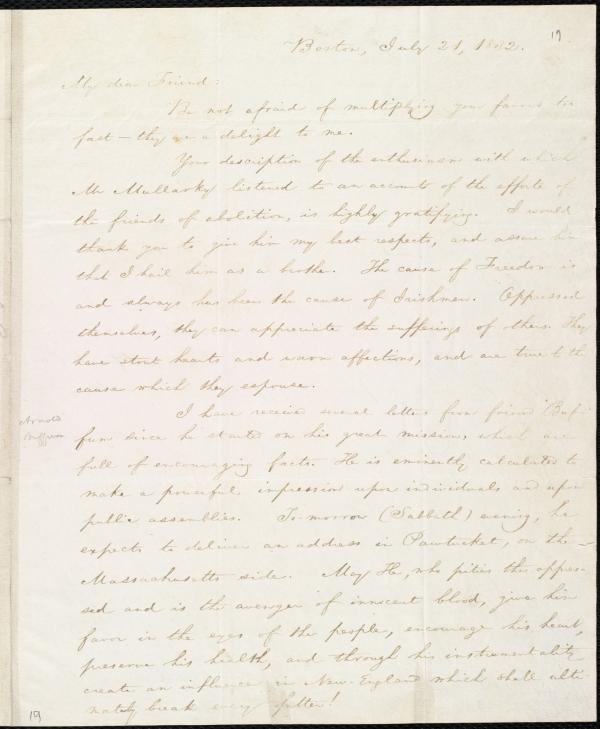 19
Boston, July 21, 1832.
My dear Friend:
Be not afraid of multiplying your favors too
fast — they are a delight to me.
Your description of the enthusiasm with which
Mr Mullarky listened to an account of the efforts of
the friends of abolition, is highly gratifying. I would
thank you to give him my best respects, and assure him
that I hail him as a brother. The cause of Freedom is
and always has been the cause of Irishmen. Oppressed
themselves, they can appreciate the sufferings of others. They
have stout hearts and warm affections, and are true to the
cause which they espouse.
I have received several letters from friend Buf-
fum since he started on his great mission, which are
Arnold
Buffum
full of encouraging facts. He is eminently calculated to
make a powerful impression upon individuals and upon
public assemblies. To-morrow (Sabbath) evening, he
expects to deliver an address in Pawtucket, on the
Massachusetts side. May He, who pities the oppres-
sed and is the avenger of innocent blood, give him
favor in the eyes of the people, encourage his heart,
preserve his health, and through his instrumentality
create an influence in New-England which shall ulti-
mately break every fetter!
19